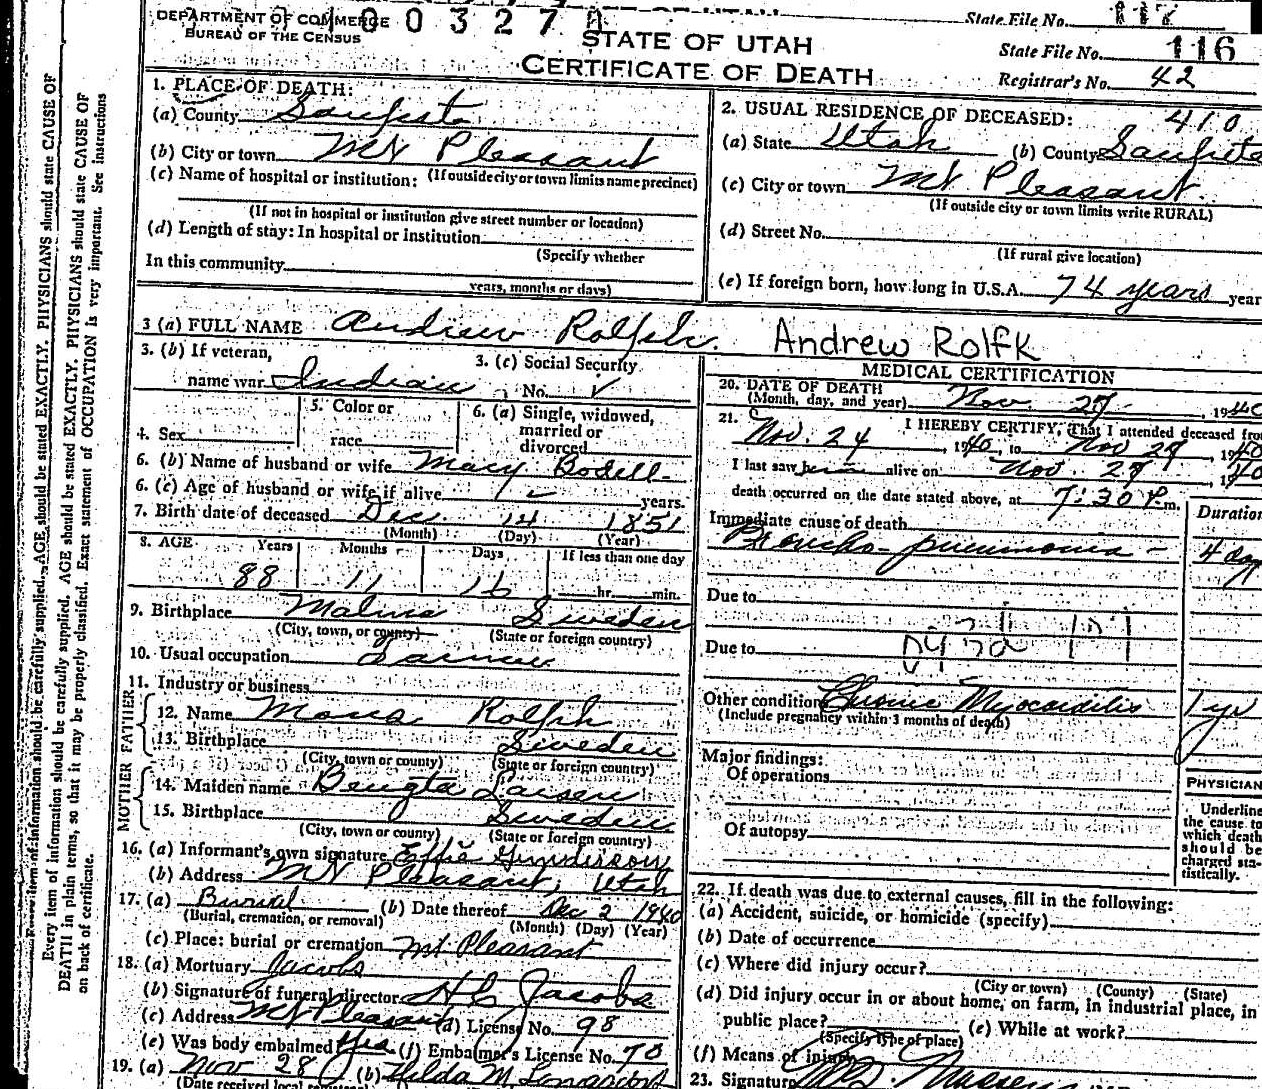 DEPARTMENT OF COMMERCE
BUREAU OF THE CENSUS
0 0 3 2 7
STATE OF UTAH
CERTIFICATE OF DEATH
State File No.
State File No. 116
Registrar's No. 42
1. PLACE OF DEATH:
(a) County Sanpete
(b) City or town Mt Pleasant
(c) Name of hospital or institution: (If outside city or town limits name precinct)
(If not in hospital or institution give street number or location)
(d) Length of stay: In hospital or institution
(Specify whether
In this community
years, months or days)
2. USUAL RESIDENCE OF DECEASED: 410
(a) State Utah (b) County Sanpete
(c) City or town Mt Pleasant
(If outside city or town limits write RURAL)
(d) Street No.
(If rural give location)
(e) If foreign born, how long in U.S.A. 74 years year
3 (a) FULL NAME Andrew Rolph. Andrew Rolfk
3. (b) If veteran,
name war Indian
3. (c) Social Security
No.
4. Sex
5. Color or
race
6. (a) Single, widowed,
married or
divorced
6. (b) Name of husband or wife Mary Bodell
6. (c) Age of husband or wife if alive years.
7. Birth date of deceased Dec 14 1851
(Month) (Day) (Year)
8. AGE Years Months Days If less than one day
88 11 16 hr. min.
9. Birthplace Malmo Sweden
(City, town, or county) (State or foreign country)
10. Usual occupation Farmer
11. Industry or business
FATHER
12. Name Mons Rolph
13. Birthplace Sweden
(City, town or county) (State or foreign country)
MOTHER
14. Maiden name Bengta Larsen
15. Birthplace Sweden
(City, town or county) (State or foreign country)
16. (a) Informant's own signature Effie Gunderson
(b) Address Mt Pleasant, Utah
17. (a) Burial (b) Date thereof Dec 2 1940
(Burial, cremation, or removal) (Month) (Day) (Year)
(c) Place: burial or cremation Mt Pleasant
18. (a) Mortuary Jacobs
(b) Signature of funeral director H C Jacobs
(c) Address Mt Pleasant (d) License No. 98
(e) Was body embalmed Yes (f) Embalmer's License No. 70
19. (a) Nov 28 (b) Hilda M
(Date received local
MEDICAL CERTIFICATION
20. DATE OF DEATH
(Month, day, and year) Nov. , 1940
21. I HEREBY CERTIFY, That I attended deceased from
Nov. 24, 1940, to Nov , 1940
I last saw him alive on Nov. , 1940
death occurred on the date stated above, at 7:30 P.m.
Duration
Immediate cause of death
Broncho-pneumonia - 4 days
Due to
Due to
Other condition Chronic Myocarditis 1 yr
(Include pregnancy within 3 months of death)
Major findings:
Of operations
Of autopsy
PHYSICIAN
Underline
the cause to
which death
should be
charged sta-
tistically.
22. If death was due to external causes, fill in the following:
(a) Accident, suicide, or homicide (specify)
(b) Date of occurrence
(c) Where did injury occur?
(City or town) (County) (State)
(d) Did injury occur in or about home, on farm, in industrial place, in
public place? (e) While at work?
(Specify type of place)
(f) Means of injury
23. Signature
Every item of information should be carefully supplied. AGE should be stated EXACTLY. PHYSICIANS should state CAUSE OF
Every item of information should be carefully supplied. AGE should be stated EXACTLY. PHYSICIANS should state CAUSE OF
DEATH in plain terms, so that it may be properly classified. Exact statement of OCCUPATION is very important. See instructions
on back of certificate.